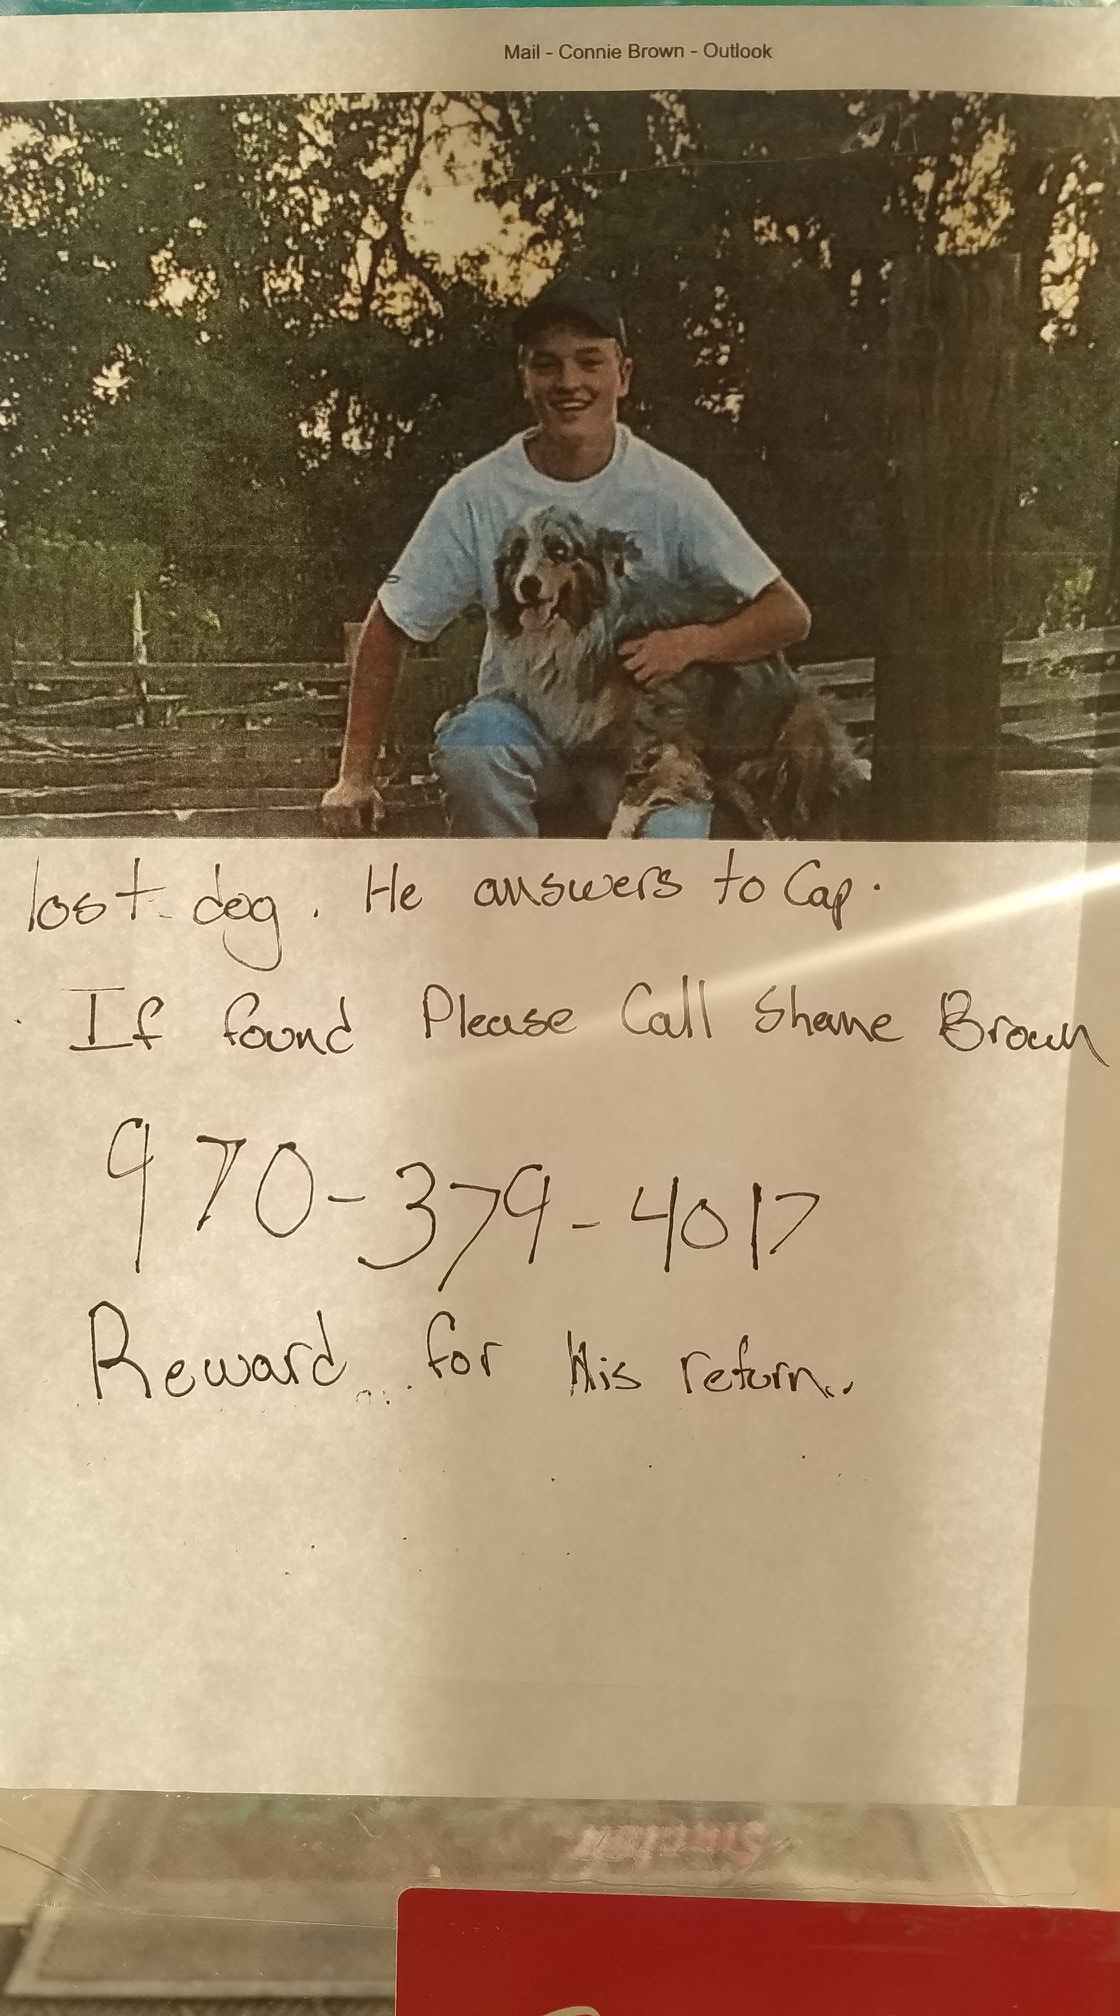 Mail - Connie Brown - Outlook
lost dog. He answers to Cap.
If found Please Call Shane Brown
970-379-4017
Reward for His return.